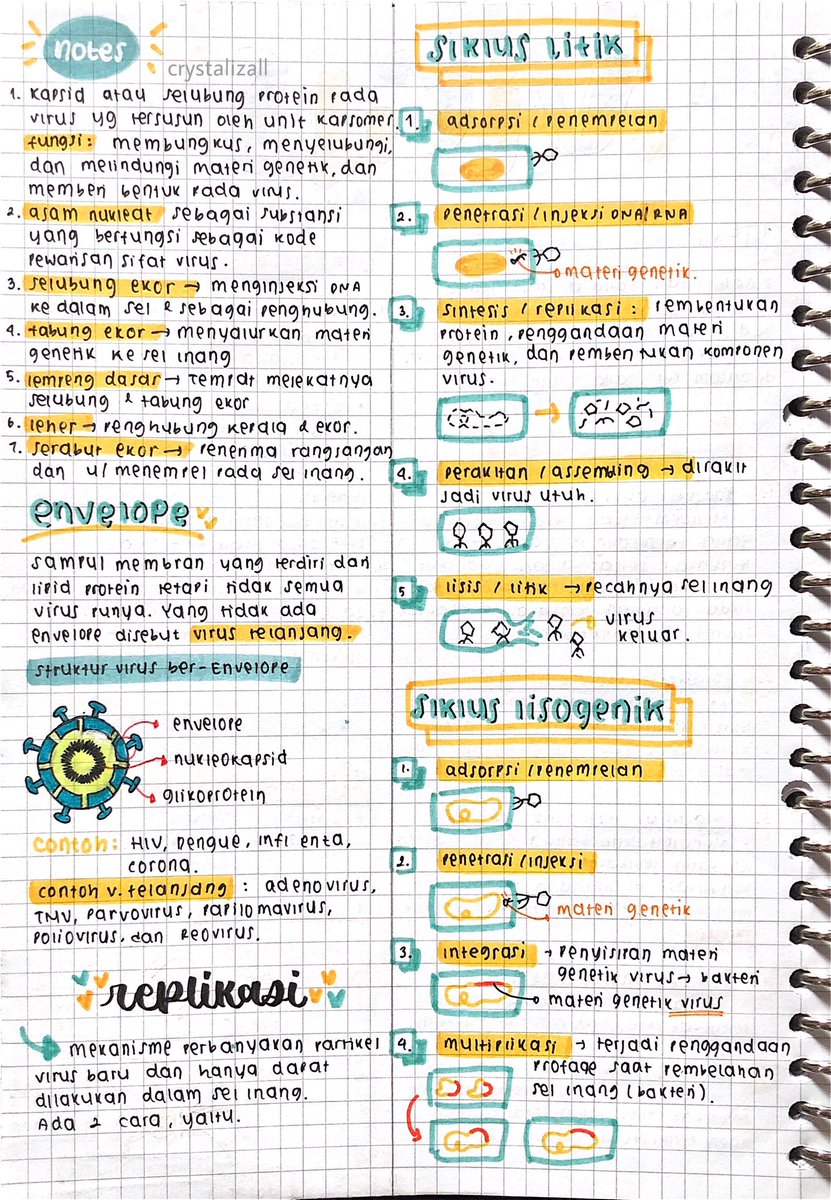 notes
crystalizall
1. Kapsid atau selubung protein pada
virus yg tersusun oleh unit kapsomer.
fungsi: membungkus, menyelubungi,
dan melindungi materi genetik, dan
memberi bentuk pada virus.
2. asam nukleat sebagai substansi
yang berfungsi sebagai kode
pewarisan sifat virus.
3. selubung ekor → menginjeksi DNA
ke dalam sel & sebagai penghubung.
4. tabung ekor → menyalurkan materi
genetik ke sel inang
5. lempeng dasar → Tempat melekatnya
selubung & tabung ekor
6. leher → penghubung kepala & ekor.
7. serabut ekor → penerima rangsangan
dan u/ menempel pada sel inang.
envelope
sampul membran yang terdiri dari
lipid protein tetapi tidak semua
virus punya. Yang tidak ada
envelope disebut virus telanjang.
struktur virus ber-Envelope
envelope
nukleokapsid
glikoprotein
contoh: HIV, Dengue, infl enta,
corona.
contoh v. telanjang : adenovirus,
TMV, parvovirus, papilomavirus,
poliovirus, dan Reovirus.
replikasi
mekanisme perbanyakan partikel
virus baru dan hanya dapat
dilakukan dalam sel inang.
Ada 2 cara, yaitu.
siklus litik
1. adsorpsi / penempelan
2. penetrasi / injeksi DNA/RNA
materi genetik.
3. sintesis / replikasi : pembentukan
protein, penggandaan materi
genetik, dan pembentukan komponen
virus.
4. perakitan / assembling → dirakit
jadi virus utuh.
5 lisis / litik → pecahnya sel inang
virus
keluar.
siklus lisogenik
1. adsorpsi / penempelan
2. penetrasi / injeksi
materi genetik
3. integrasi → penyisipan materi
genetik virus → bakteri
materi genetik virus
4. multiplikasi → terjadi penggandaan
profage saat pembelahan
sel inang (bakteri).